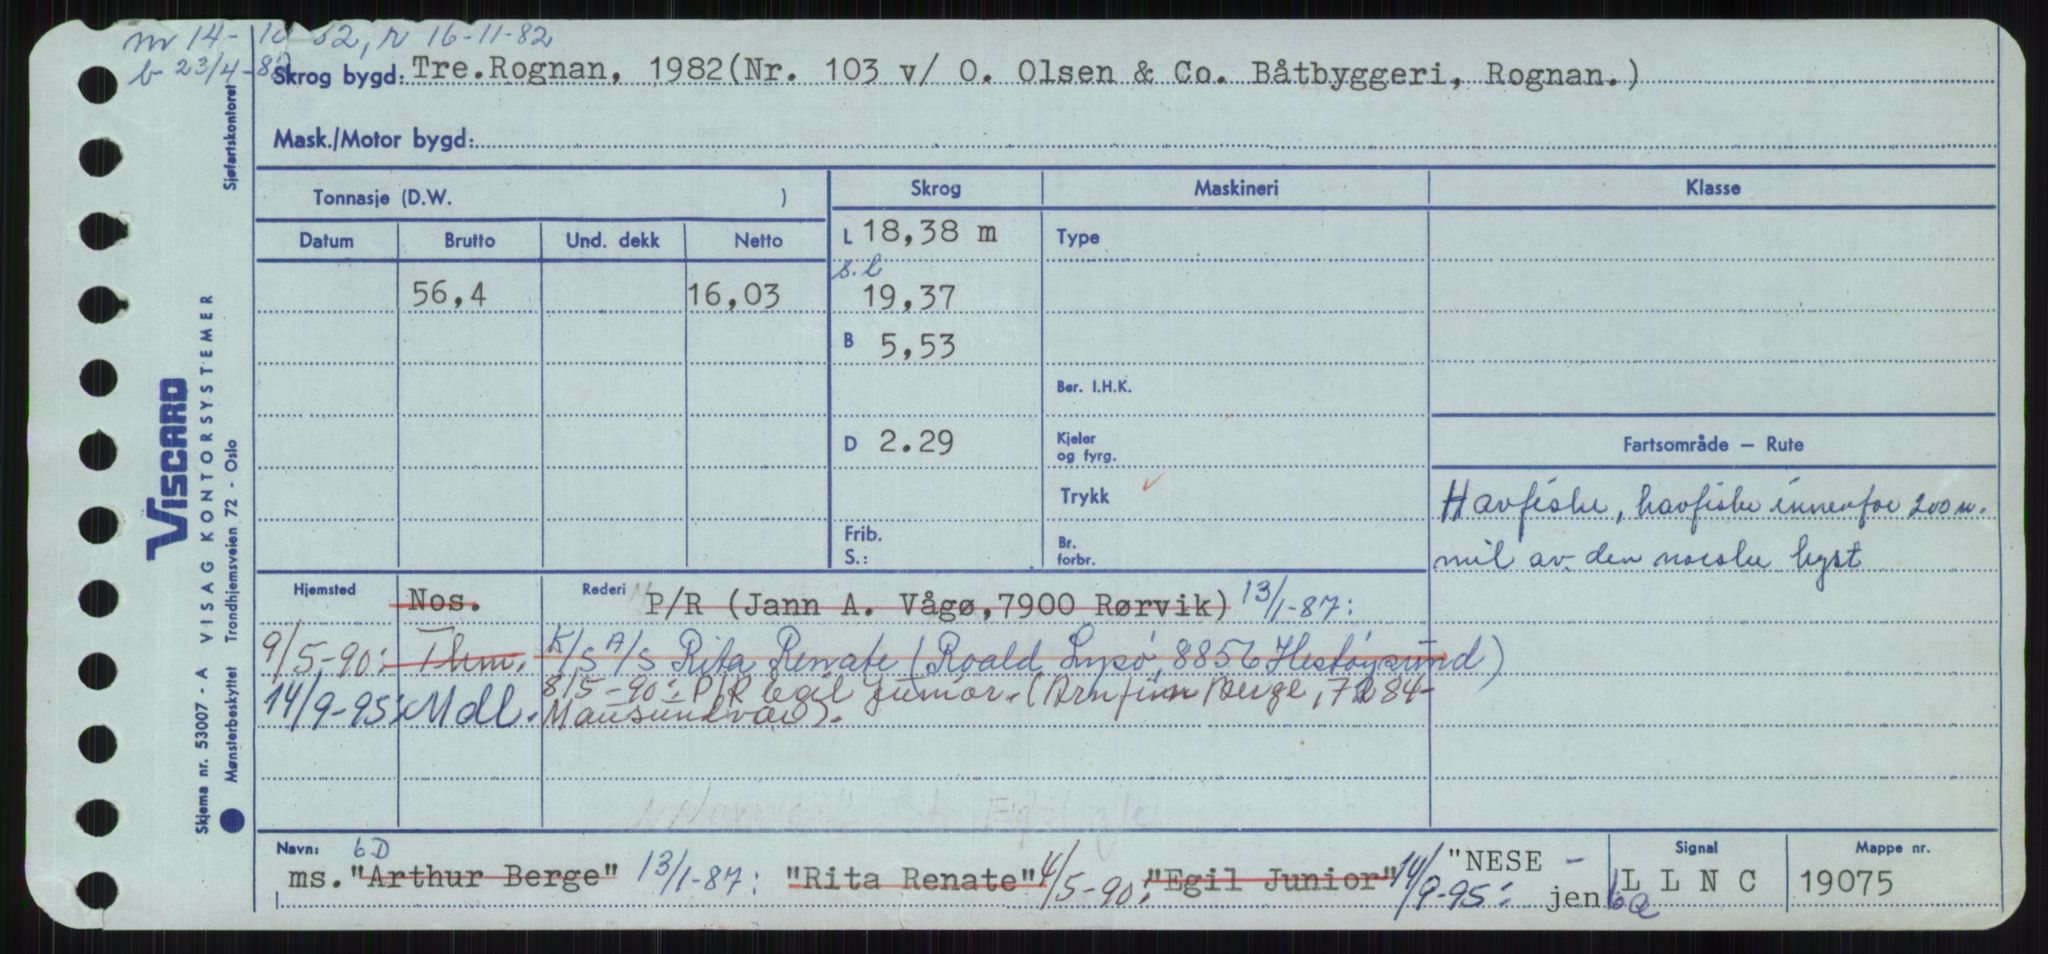 nr 14-10 82, r 16-11-82
b 23/4-87
Skrog bygd: Tre.Rognan, 1982(Nr. 103 v/ O. Olsen & Co. Båtbyggeri, Rognan.)
Sjøfartskontoret
Mask./Motor bygd:
Tonnasje (D.W. )
Skrog
Maskineri
Klasse
Datum
Brutto
Und. dekk
Netto
L 18,38 m
Type
s.l
56,4
16,03
19,37
B 5,53
Ber. I.H.K.
D 2.29
Kjeler
og fyrg.
Fartsområde — Rute
Trykk
Havfiske, havfiske innenfor 200 n.
mil av den norske kyst
Frib.
S.:
Br.
forbr.
Hjemsted
Nos.
Rederi
P/R (Jann A. Vågø,7900 Rørvik) 13/1-87:
9/5-90: Thm. K/S A/S Rita Renate (Roald Lysø, 8856 Hestøysund)
8/5-90: P/R Egil Junior. (Arnfinn Berge, 7284-
14/9-95: Mdl. Mausundvær).
Navn:
bD
ms. "Arthur Berge" 13/1-87: "Rita Renate" 4/5-90: "Egil Junior" 14/9-95: "NESE -
jen
ba
Signal
L L N C
Mappe nr.
19075
VISCARD
VISAG KONTORSYSTEMER
Skjema nr. 53007 - A
Mønsterbeskyttet Trondhjemsveien 72 - Oslo